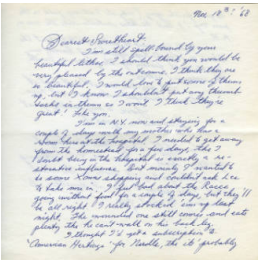 Nov 18th '68
Dearest Sweetheart
I'm still spell bound by your
beautiful letter. I should think you would be
very pleased by the outcome. I think they are
so beautiful, I would love to put some of them
up, but I know I shouldn't put any thumb
tacks in them so I won't. I think They're
great! Like you.
I'm in N.Y. now and staying for a
couple of days with my mother who has a
I needed to get away
from the for a few days, tho I
doubt being in the hospital is exactly a re-
storative influence. But mainly I wanted to
do some Xmas shopping and couldn't ask her
to take me in. I feel bad about the
going without food for a couple of days, but they'll
be all right. I really stocked em up last
night. The wounded one still comes and eats
plenty tho he can't walk on his back leg.
I thought I'd get a subscription to
"American Heritage" for the it' probably